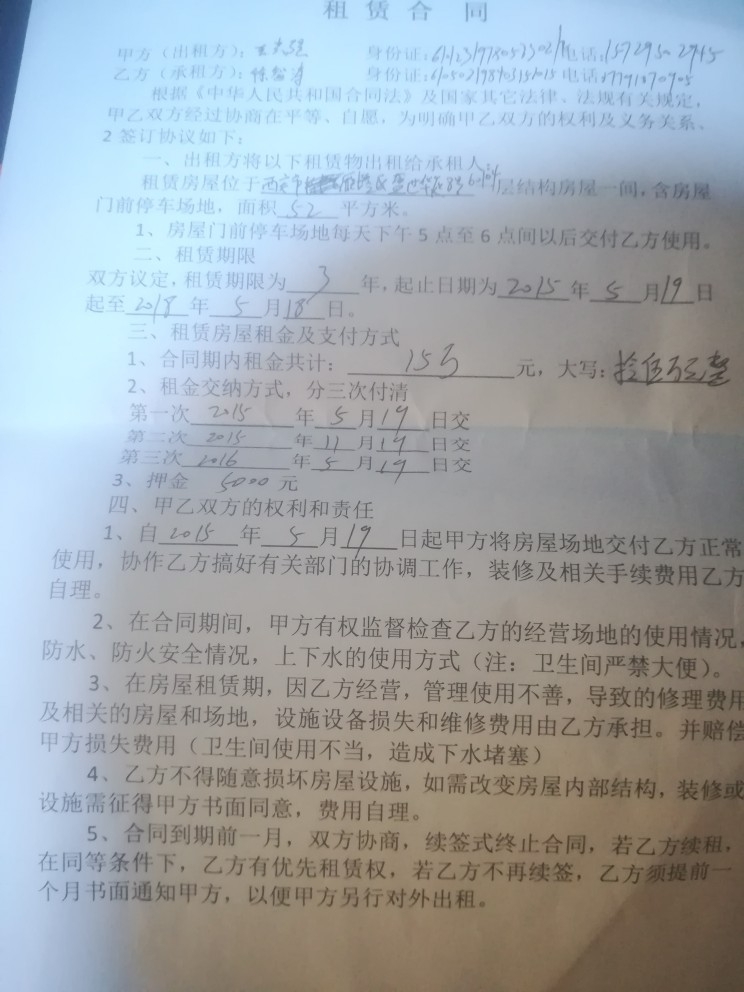 租赁合同
甲方（出租方）： 身份证： 电话：
乙方（承租方）： 身份证： 电话
根据《中华人民共和国合同法》及国家其它法律、法规有关规定，
甲乙双方经过协商在平等、自愿，为明确甲乙双方的权利及义务关系、
2 签订协议如下：
一、出租方将以下租赁物出租给承租人
租赁房屋位于 层结构房屋一间，含房屋
门前停车场地，面积 52 平方米。
1、房屋门前停车场地每天下午 5 点至 6 点间以后交付乙方使用。
二、租赁期限
双方议定，租赁期限为 3 年，起止日期为 2015 年 5 月 19 日
起至 2018 年 5 月 18 日。
三、租赁房屋租金及支付方式
1、合同期内租金共计： 15万 元，大写：拾伍万元整
2、租金交纳方式，分三次付清
第一次 2015 年 5 月 19 日交
第二次 2015 年 11 月 19 日交
第三次 2016 年 5 月 19 日交
3、押金 5000 元
四、甲乙双方的权利和责任
1、自 2015 年 5 月 19 日起甲方将房屋场地交付乙方正常
使用，协作乙方搞好有关部门的协调工作，装修及相关手续费用乙方
自理。
2、在合同期间，甲方有权监督检查乙方的经营场地的使用情况，
防水、防火安全情况，上下水的使用方式（注：卫生间严禁大便）。
3、在房屋租赁期，因乙方经营，管理使用不善，导致的修理费用
及相关的房屋和场地，设施设备损失和维修费用由乙方承担。并赔偿
甲方损失费用（卫生间使用不当，造成下水堵塞）
4、乙方不得随意损坏房屋设施，如需改变房屋内部结构，装修或
设施需征得甲方书面同意，费用自理。
5、合同到期前一月，双方协商，续签式终止合同，若乙方续租，
在同等条件下，乙方有优先租赁权，若乙方不再续签，乙方须提前一
个月书面通知甲方，以便甲方另行对外出租。